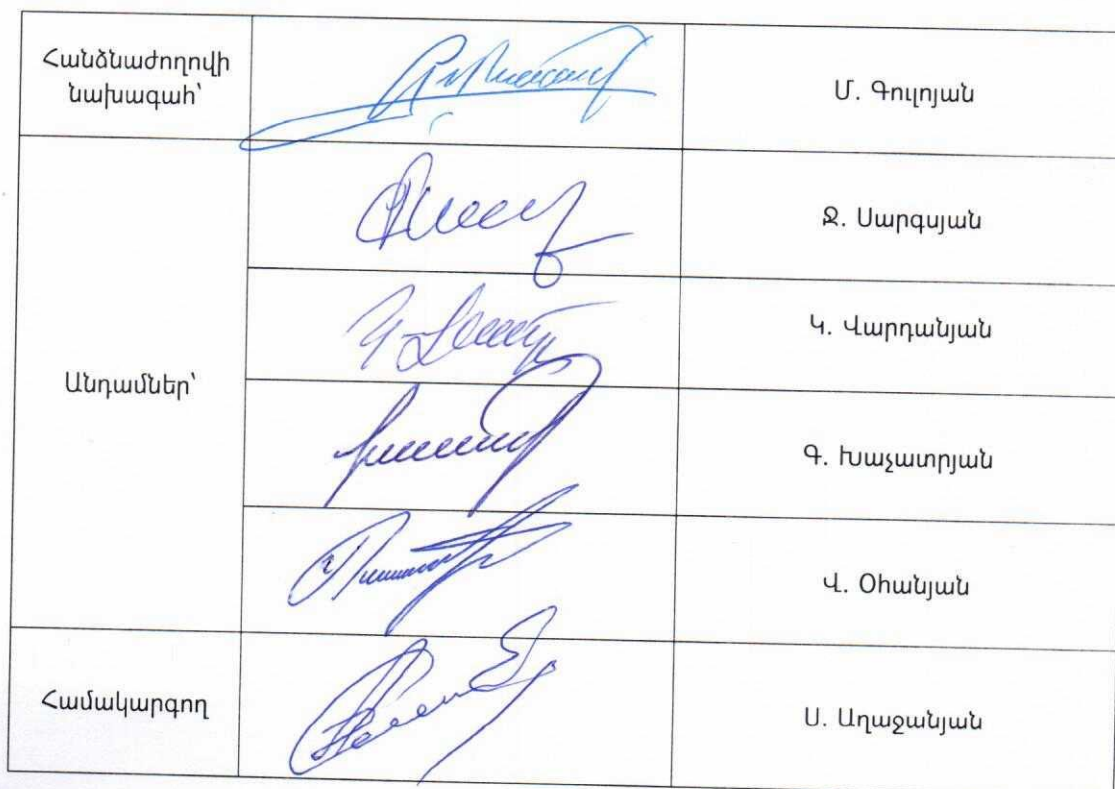 Հանձնաժողովի
նախագահ՝
Մ. Գուլոյան
Ջ. Սարգսյան
Կ. Վարդանյան
Անդամներ՝
Գ. Խաչատրյան
Վ. Օհանյան
Համակարգող
Ս. Աղաջանյան